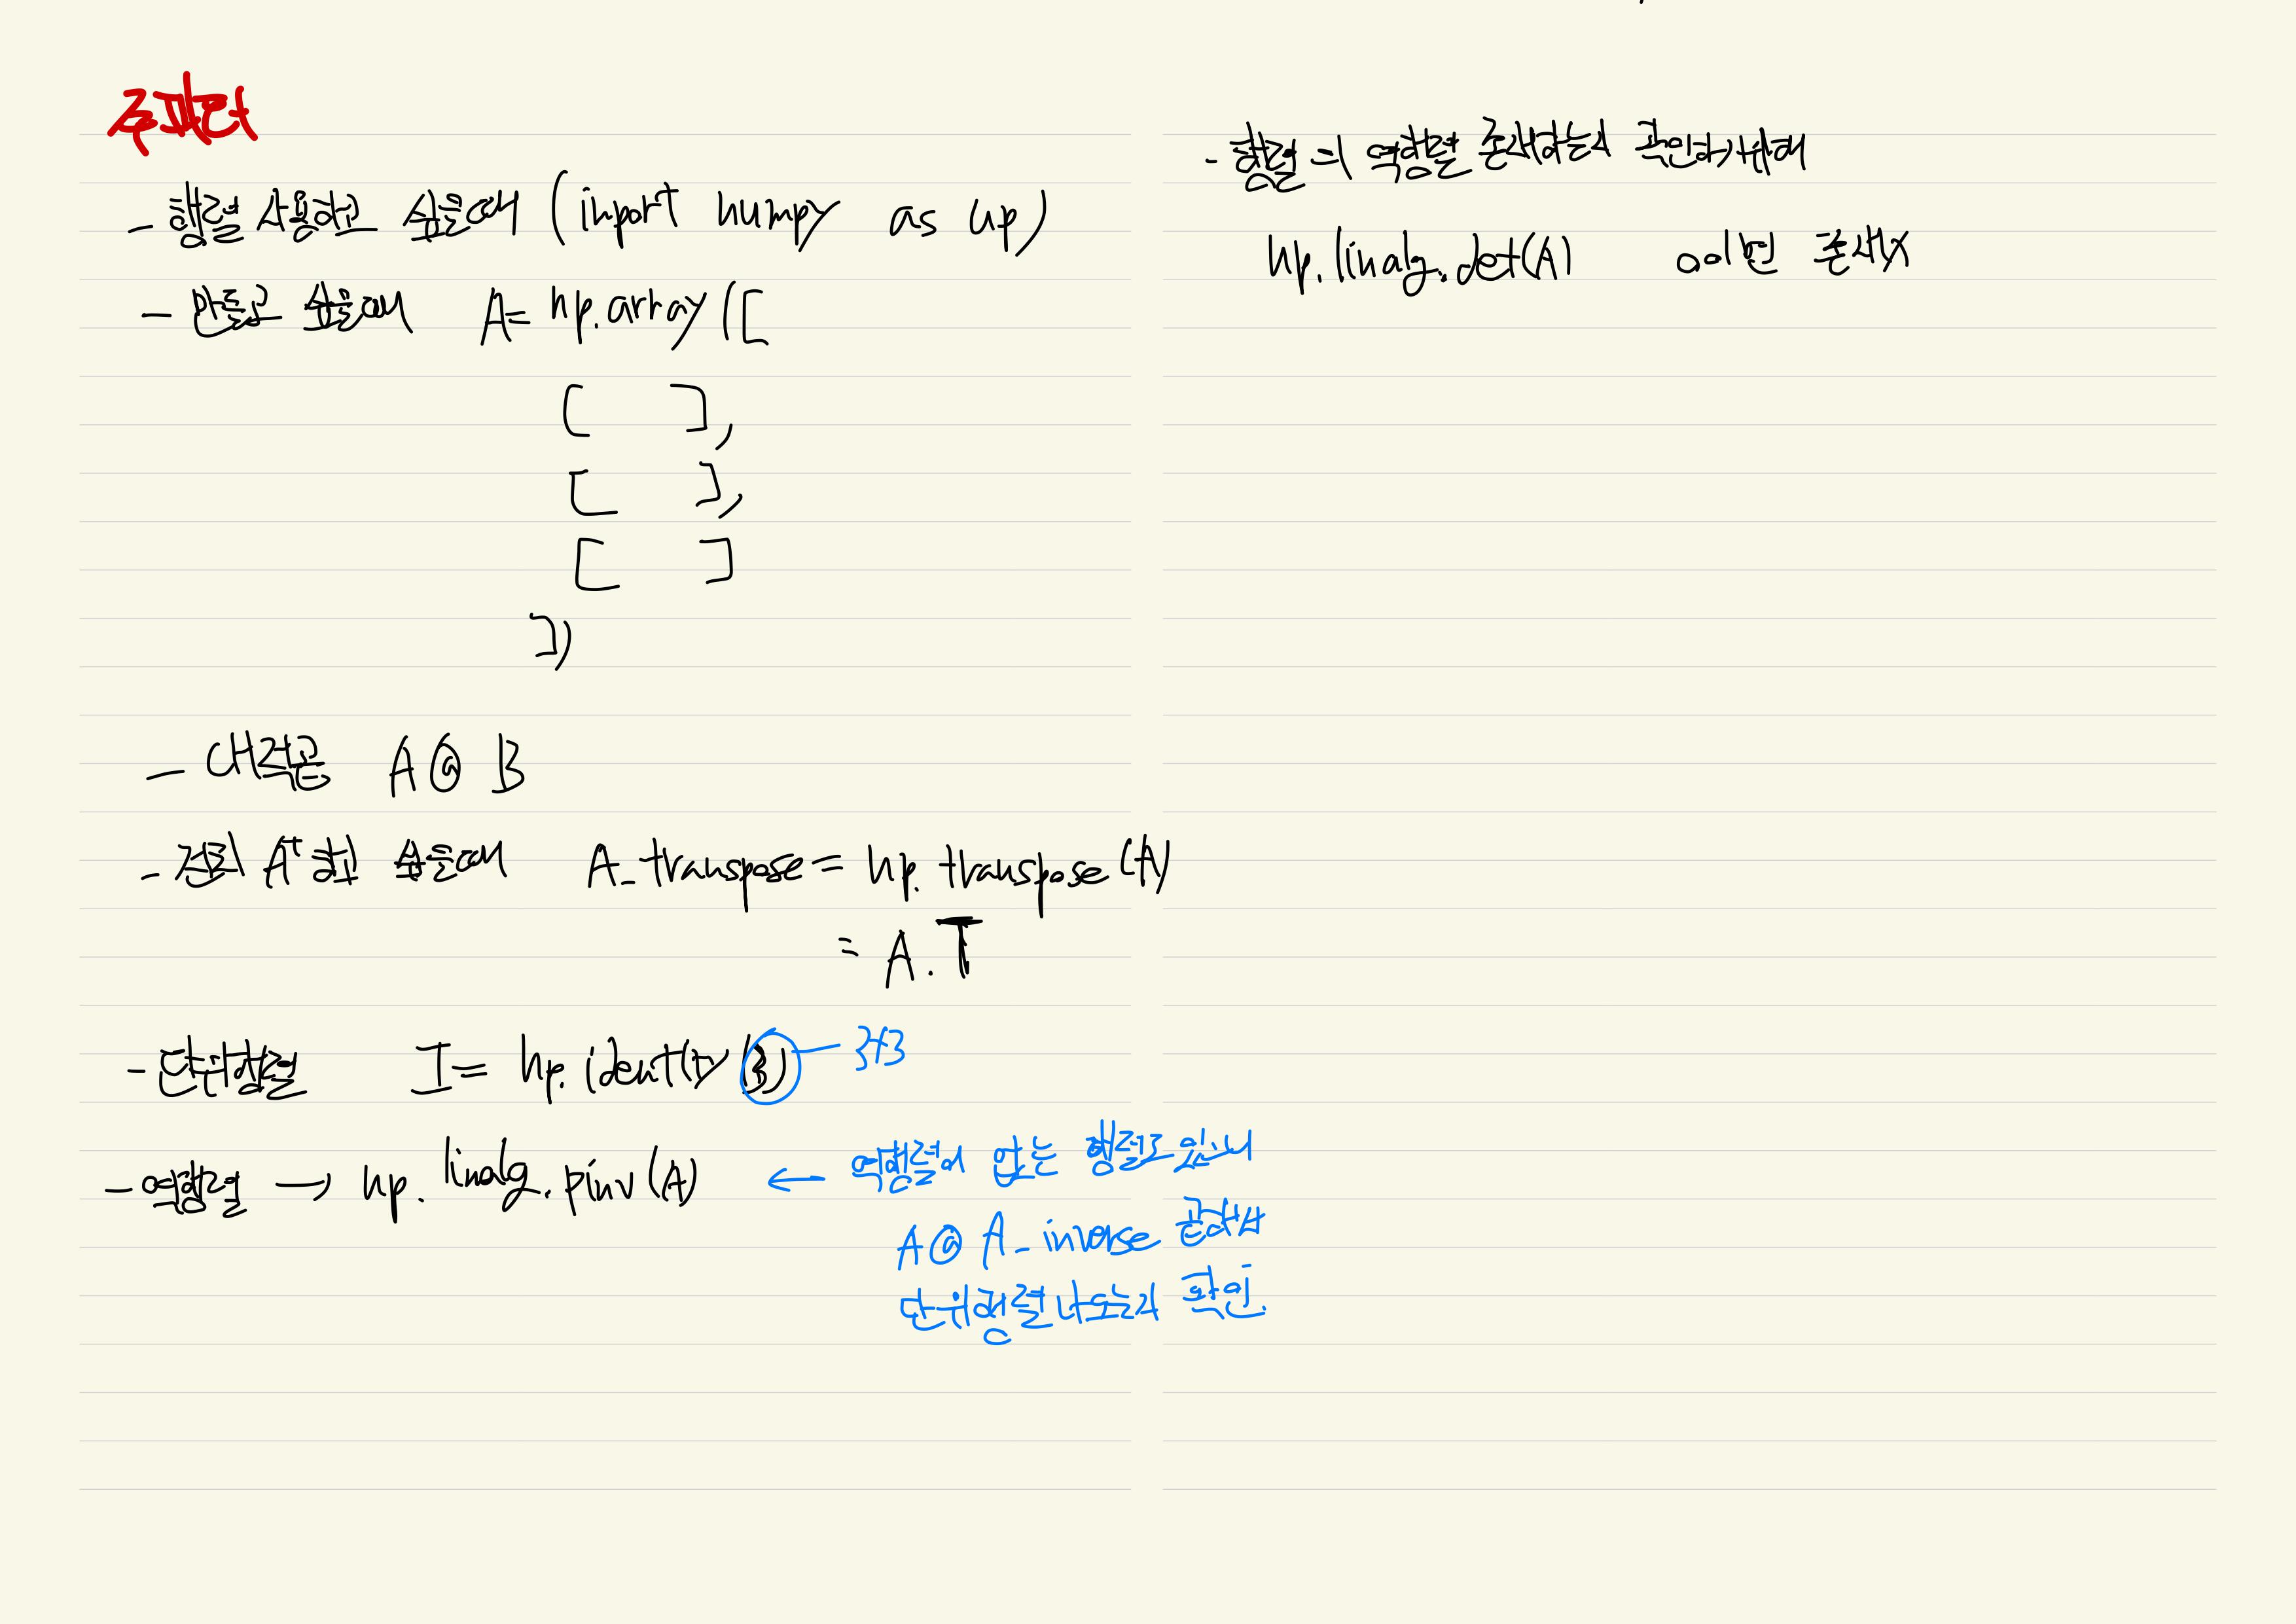 주피터
- 행렬 사용하고 싶을때 (import numpy as np)
- 만들고 싶을때 A= np.array([
[ ],
[ ],
[ ]
])
- 내적은 A@B
- 전치 Aᵀ 하고 싶을때 A_transpose = np.transpose(A)
= A.T
- 단위행렬 I = np.identity(3) 3×3
- 역행렬 → np.linalg.pinv(A) ← 역행렬이 없는 행렬도 있으니
A@A_inverse 곱해서
단위행렬 나오는지 확인.
- 행렬의 역행렬 존재하는지 확인하기 위해
np.linalg.det(A) 0이면 존재X